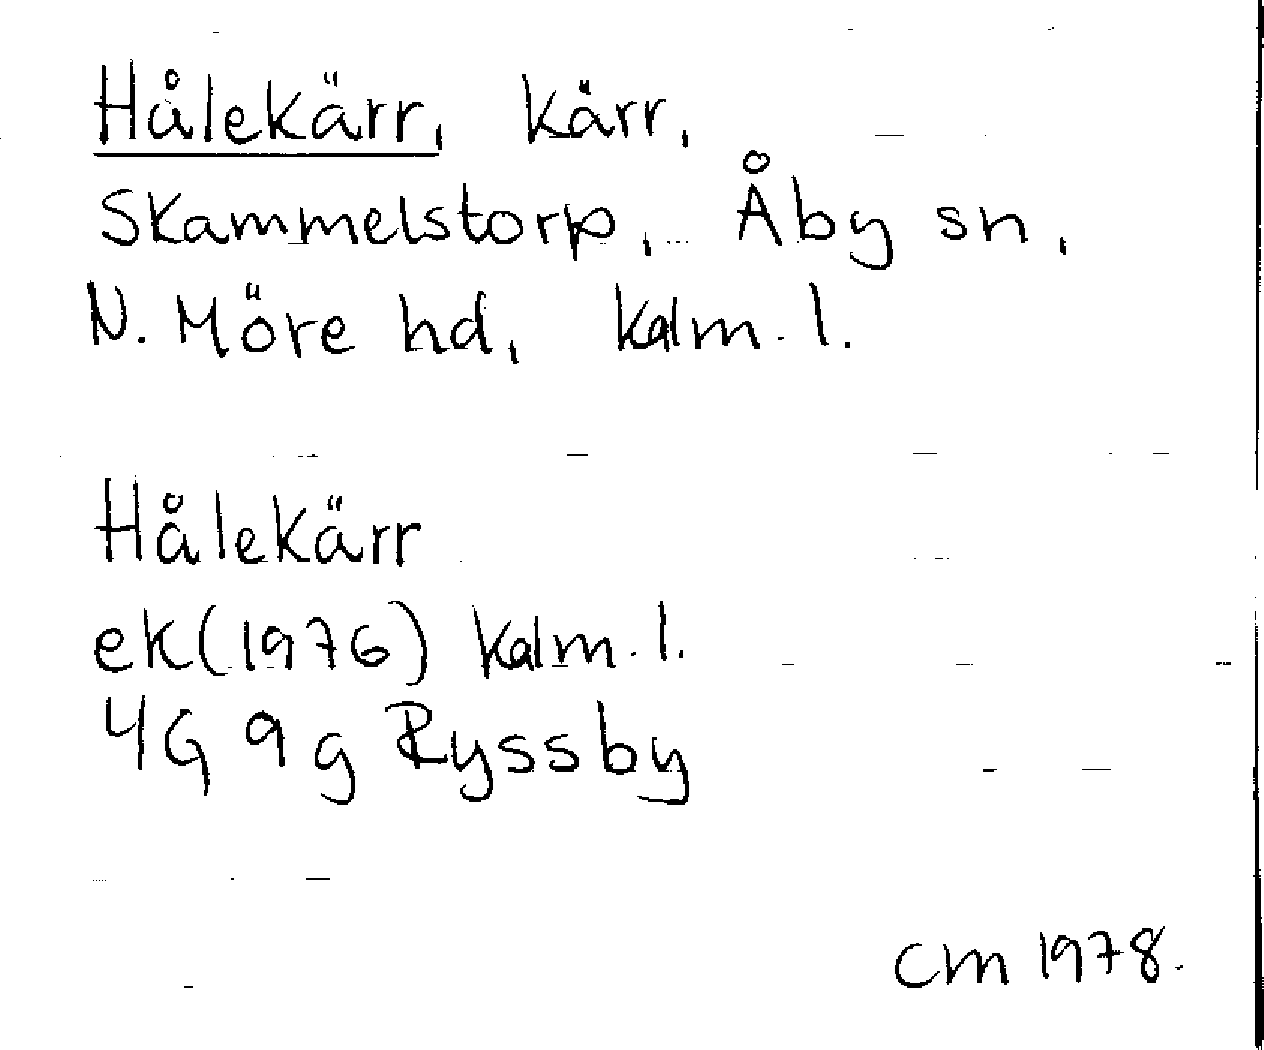 Hålekärr, kärr,
Skammelstorp, Åby sn,
N. Möre hd, Kalm. l.
Hålekärr
ek (1976) Kalm. l.
4G 9g Ryssby
CM 1978.